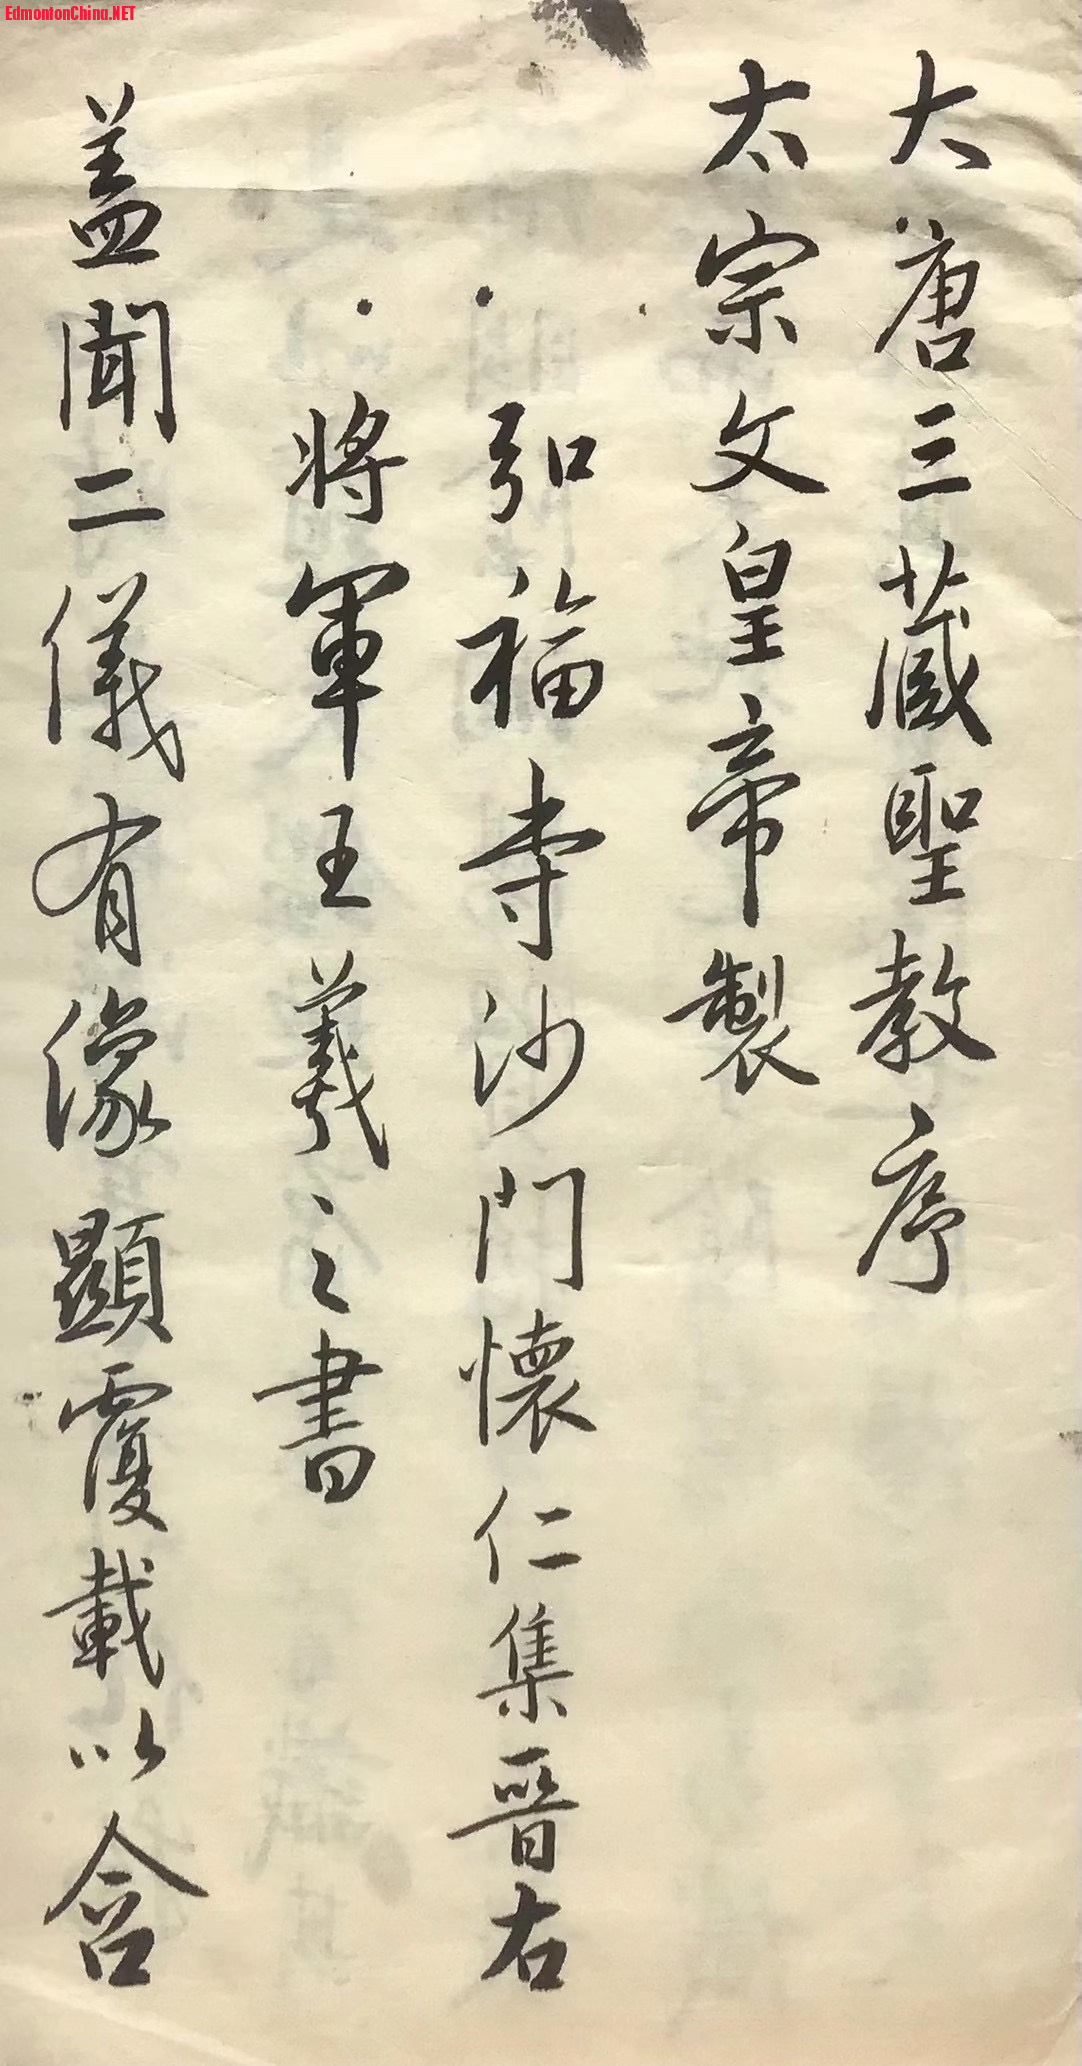 EdmontonChina.NET
大唐三藏聖教序
太宗文皇帝製
弘福寺沙門懷仁集晉右
將軍王羲之書
蓋聞二儀有像顯覆載以含